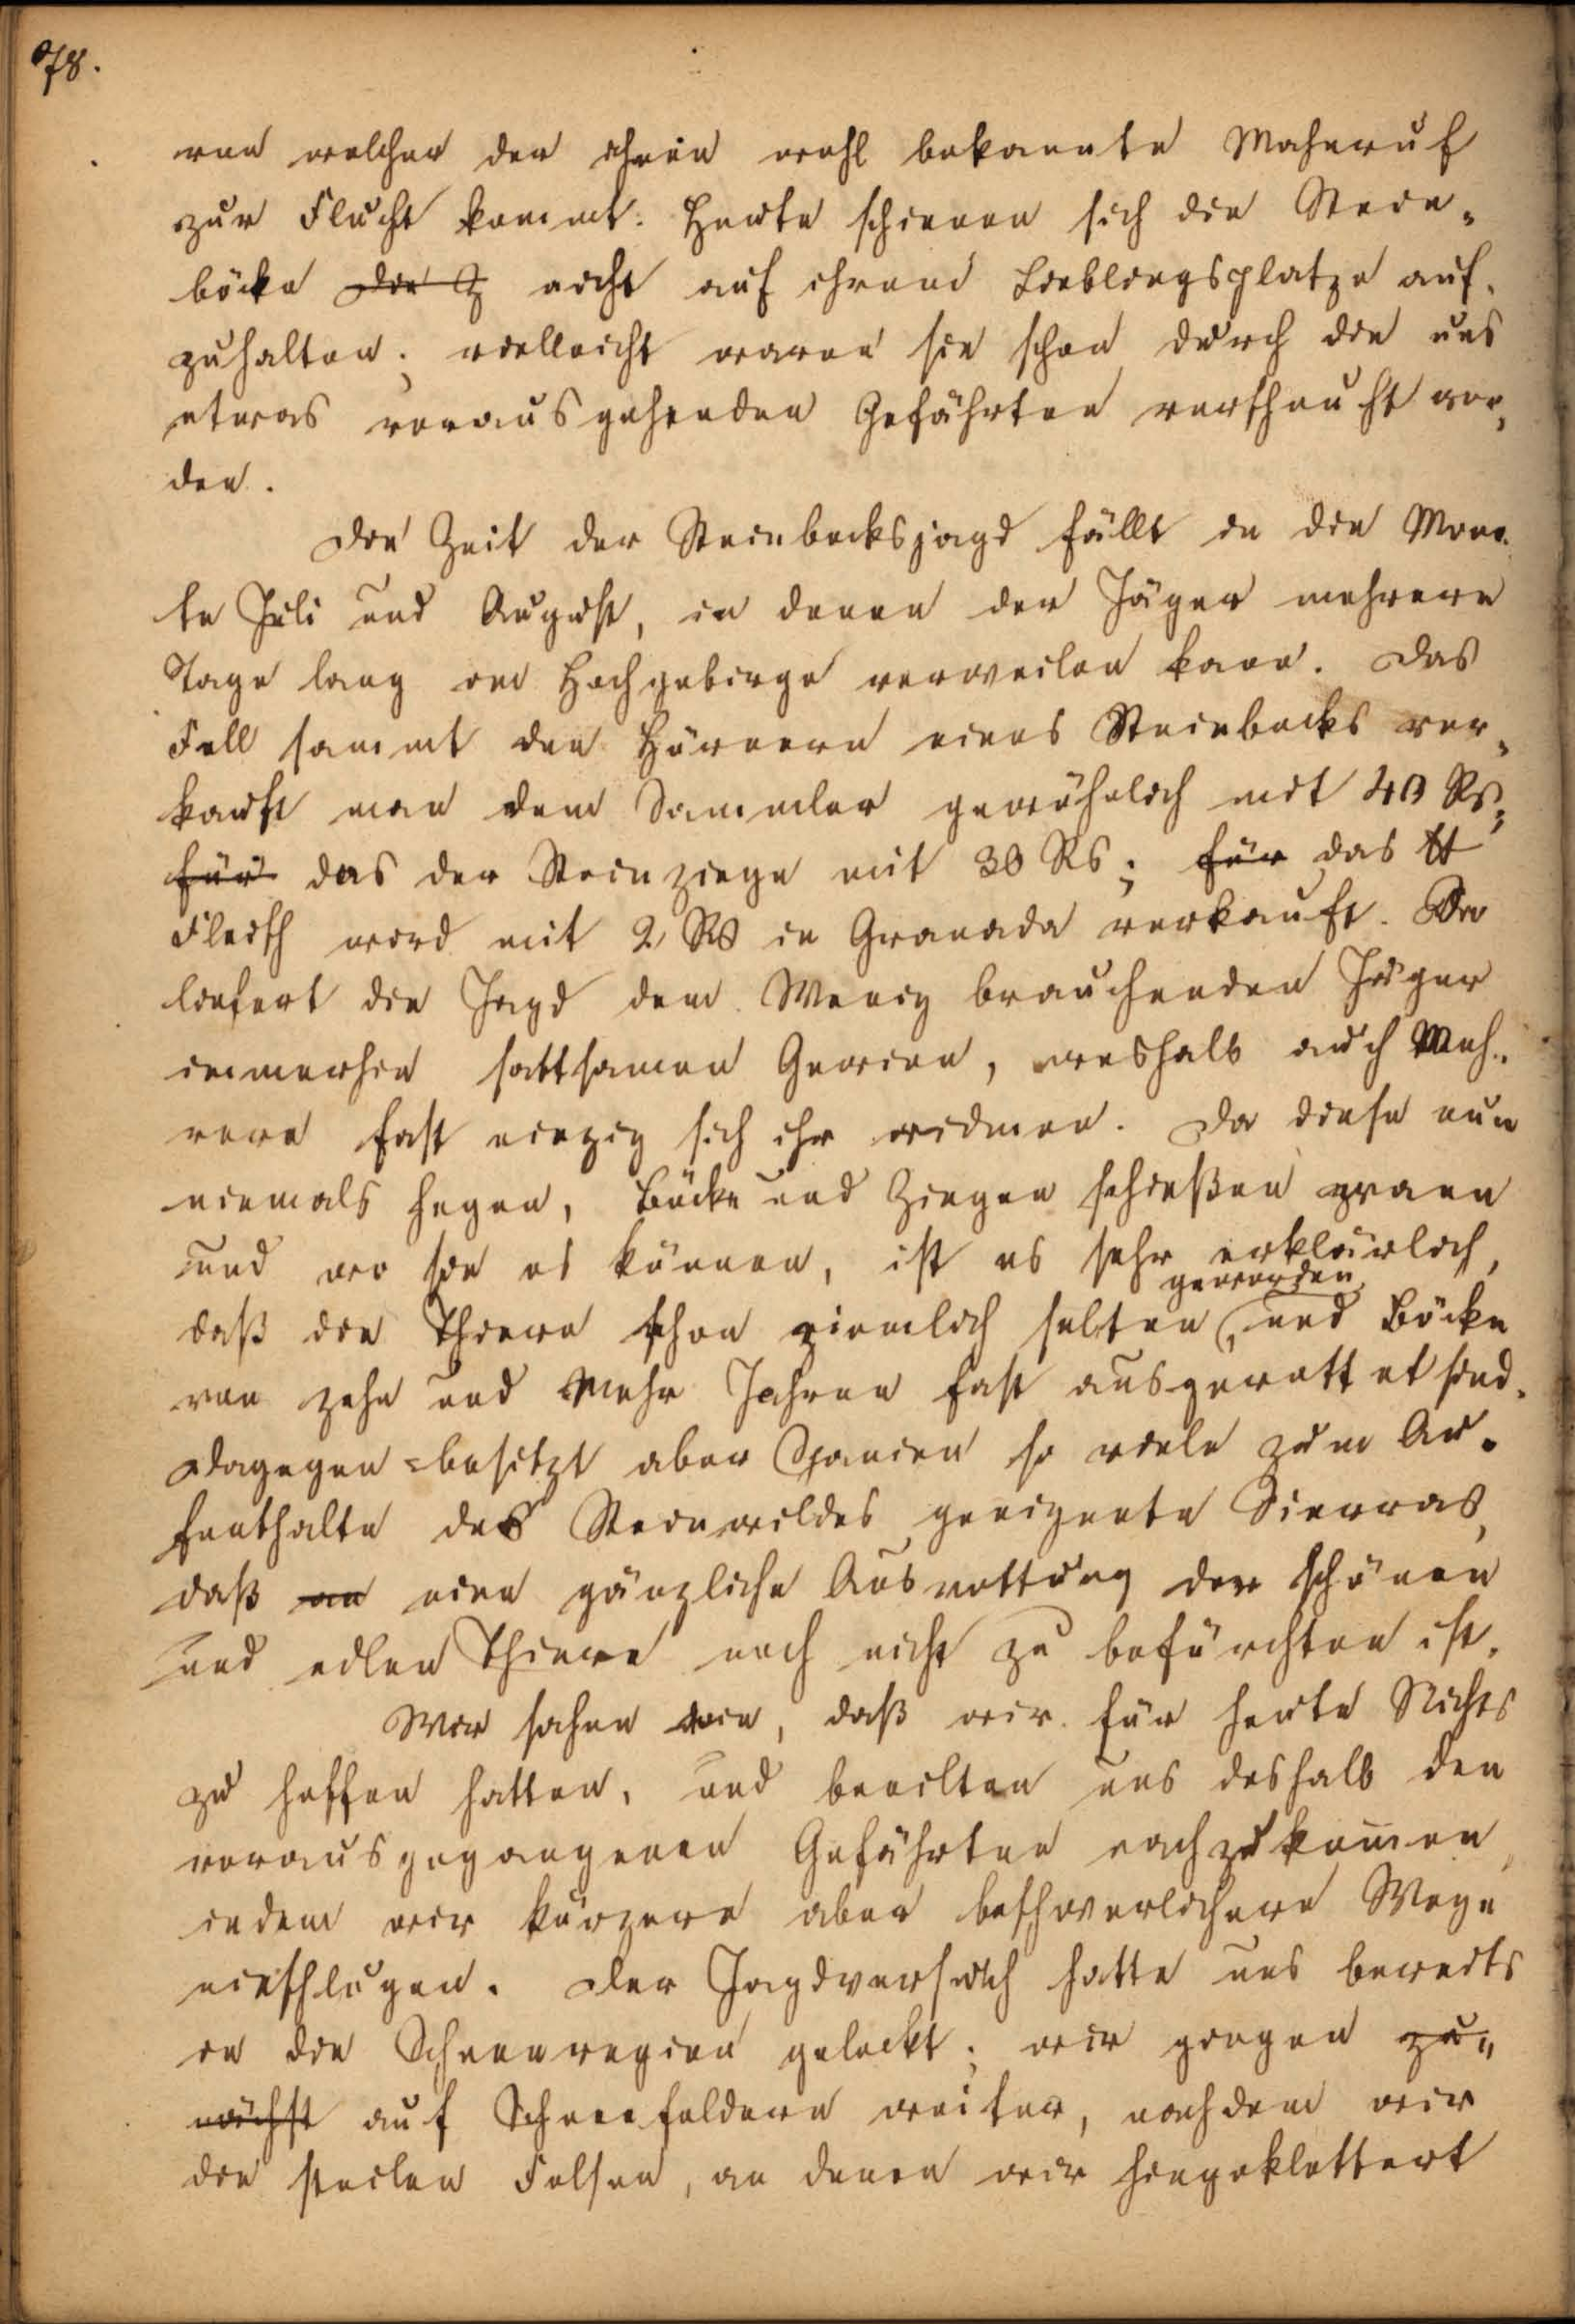 78.
von welcher der ihnen wohl bekannte Mahnruf
zur Flucht kommt. Heute schienen sich die Stein-
böcke die Z nicht auf ihrem Lieblingsplatze auf-
zuhalten; vielleicht waren sie schon durch die uns
etwas vorausgehenden Gefährten verscheucht wor-
den.
Die Zeit der Steinbocksjagd fällt in die Mona-
te Juli und August, in denen der Jäger mehrere
Tage lang im Hochgebirge verweilen kann. Das
Fell sammt den Hörnern eines Steinbocks ver-
kauft man dem Sammler gewöhnlich mit 40 Rs,
für das der Steinziege mit 30 Rs; für das ℔
Fleisch wird mit 2 Rs in Granada verkauft. So
liefert die Jagd dem Wenig brauchenden Jäger
immerhin sattsamen Gewinn, weshalb auch Meh-
rere fast einzig sich ihr widmen. Da diese nun
niemals hegen, Böcke und Ziegen schießen wann
und wo sie es können, ist es sehr erklärlich,
geworden,
daß die Thiere schon ziemlich selten, und Böcke
von zehn und mehr Jahren fast ausgerottet sind.
Dagegen besitzt aber Spanien so viele zum Au-
fenthalte des Steinwildes geeignete Sierras,
daß an eine gänzliche Ausrottung der schönen
und edlen Thiere noch nicht zu befürchten ist.
Wir sahen ein, daß wir für heute Nichts
zu hoffen hatten, und beeilten uns deshalb den
vorausgegangenen Gefährten nachzukommen,
indem wir kürzere aber beschwerlichere Wege
einschlugen. Der Jagdversuch hatte uns bereits
in die Schneeregion gelockt; wir gingen zu-
nächst auf Schneefeldern weiter, nachdem wir
die steilen Felsen, an denen wir hingeklettert